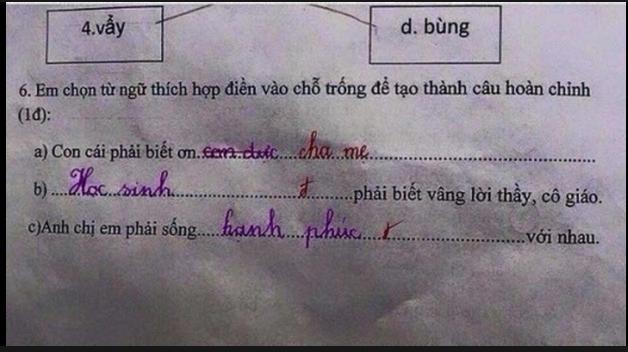 4.vẫy
d. bùng
6. Em chọn từ ngữ thích hợp điền vào chỗ trống để tạo thành câu hoàn chỉnh
(1đ):
a) Con cái phải biết ơn......cha mẹ......
b)....Học sinh......phải biết vâng lời thầy, cô giáo.
c)Anh chị em phải sống....hạnh phúc......với nhau.